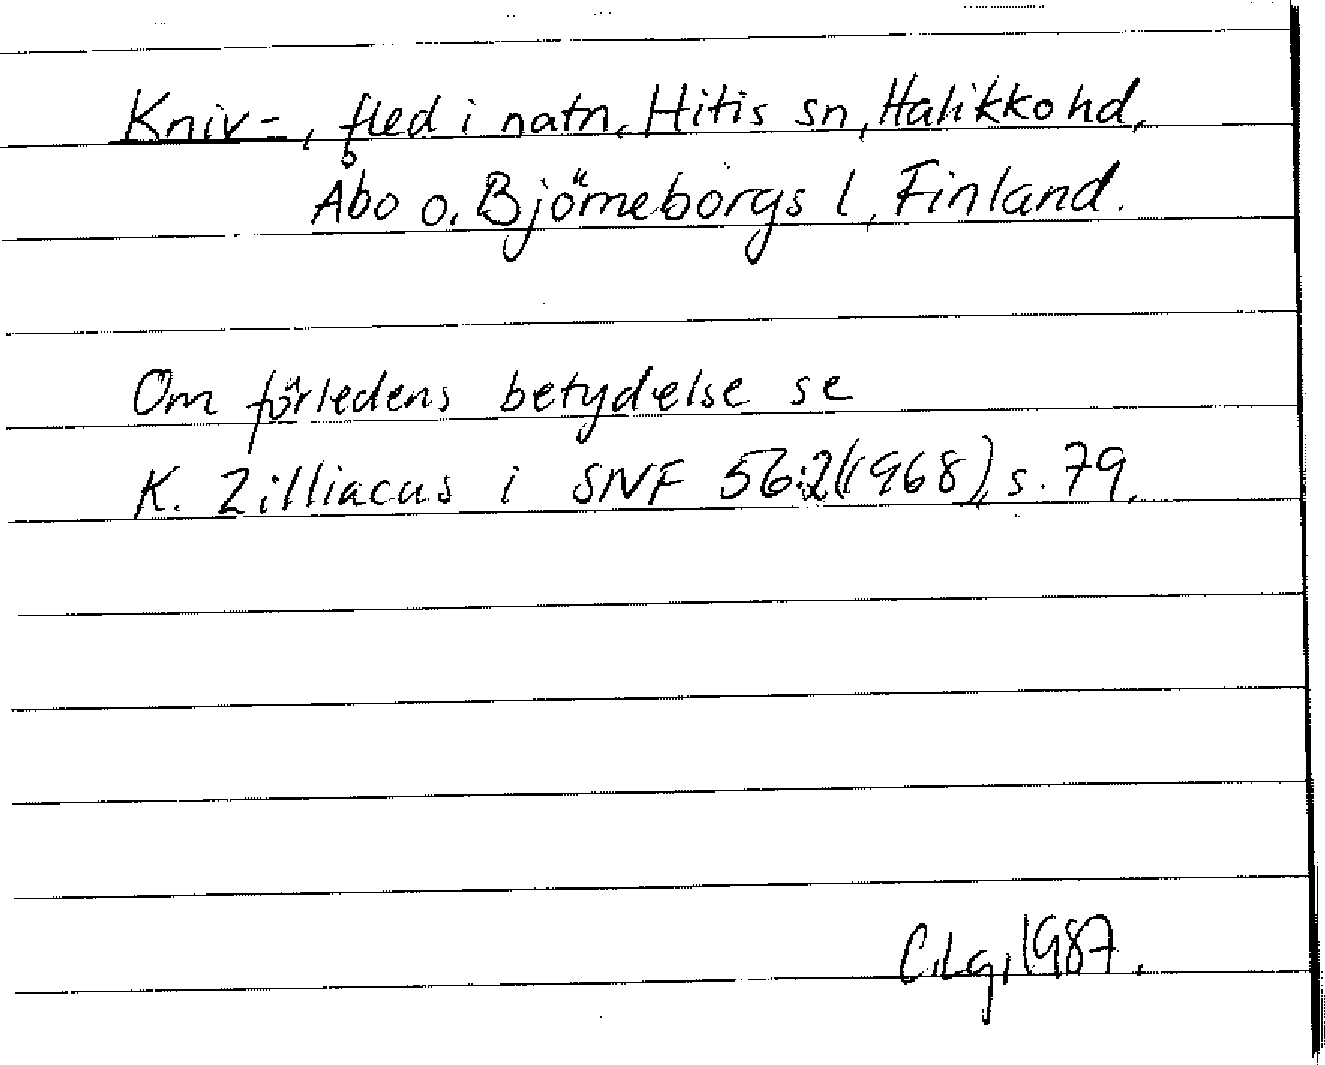 Kniv-, fled i natn, Hitis sn, Halikko hd,
Åbo o. Björneborgs l, Finland.
Om förledens betydelse se
K. Zilliacus i SNF 56:2(1968), s. 79.
C.Lg, 1987.